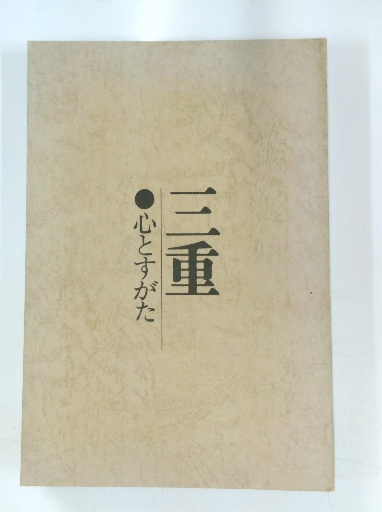 三重
●心とすがた